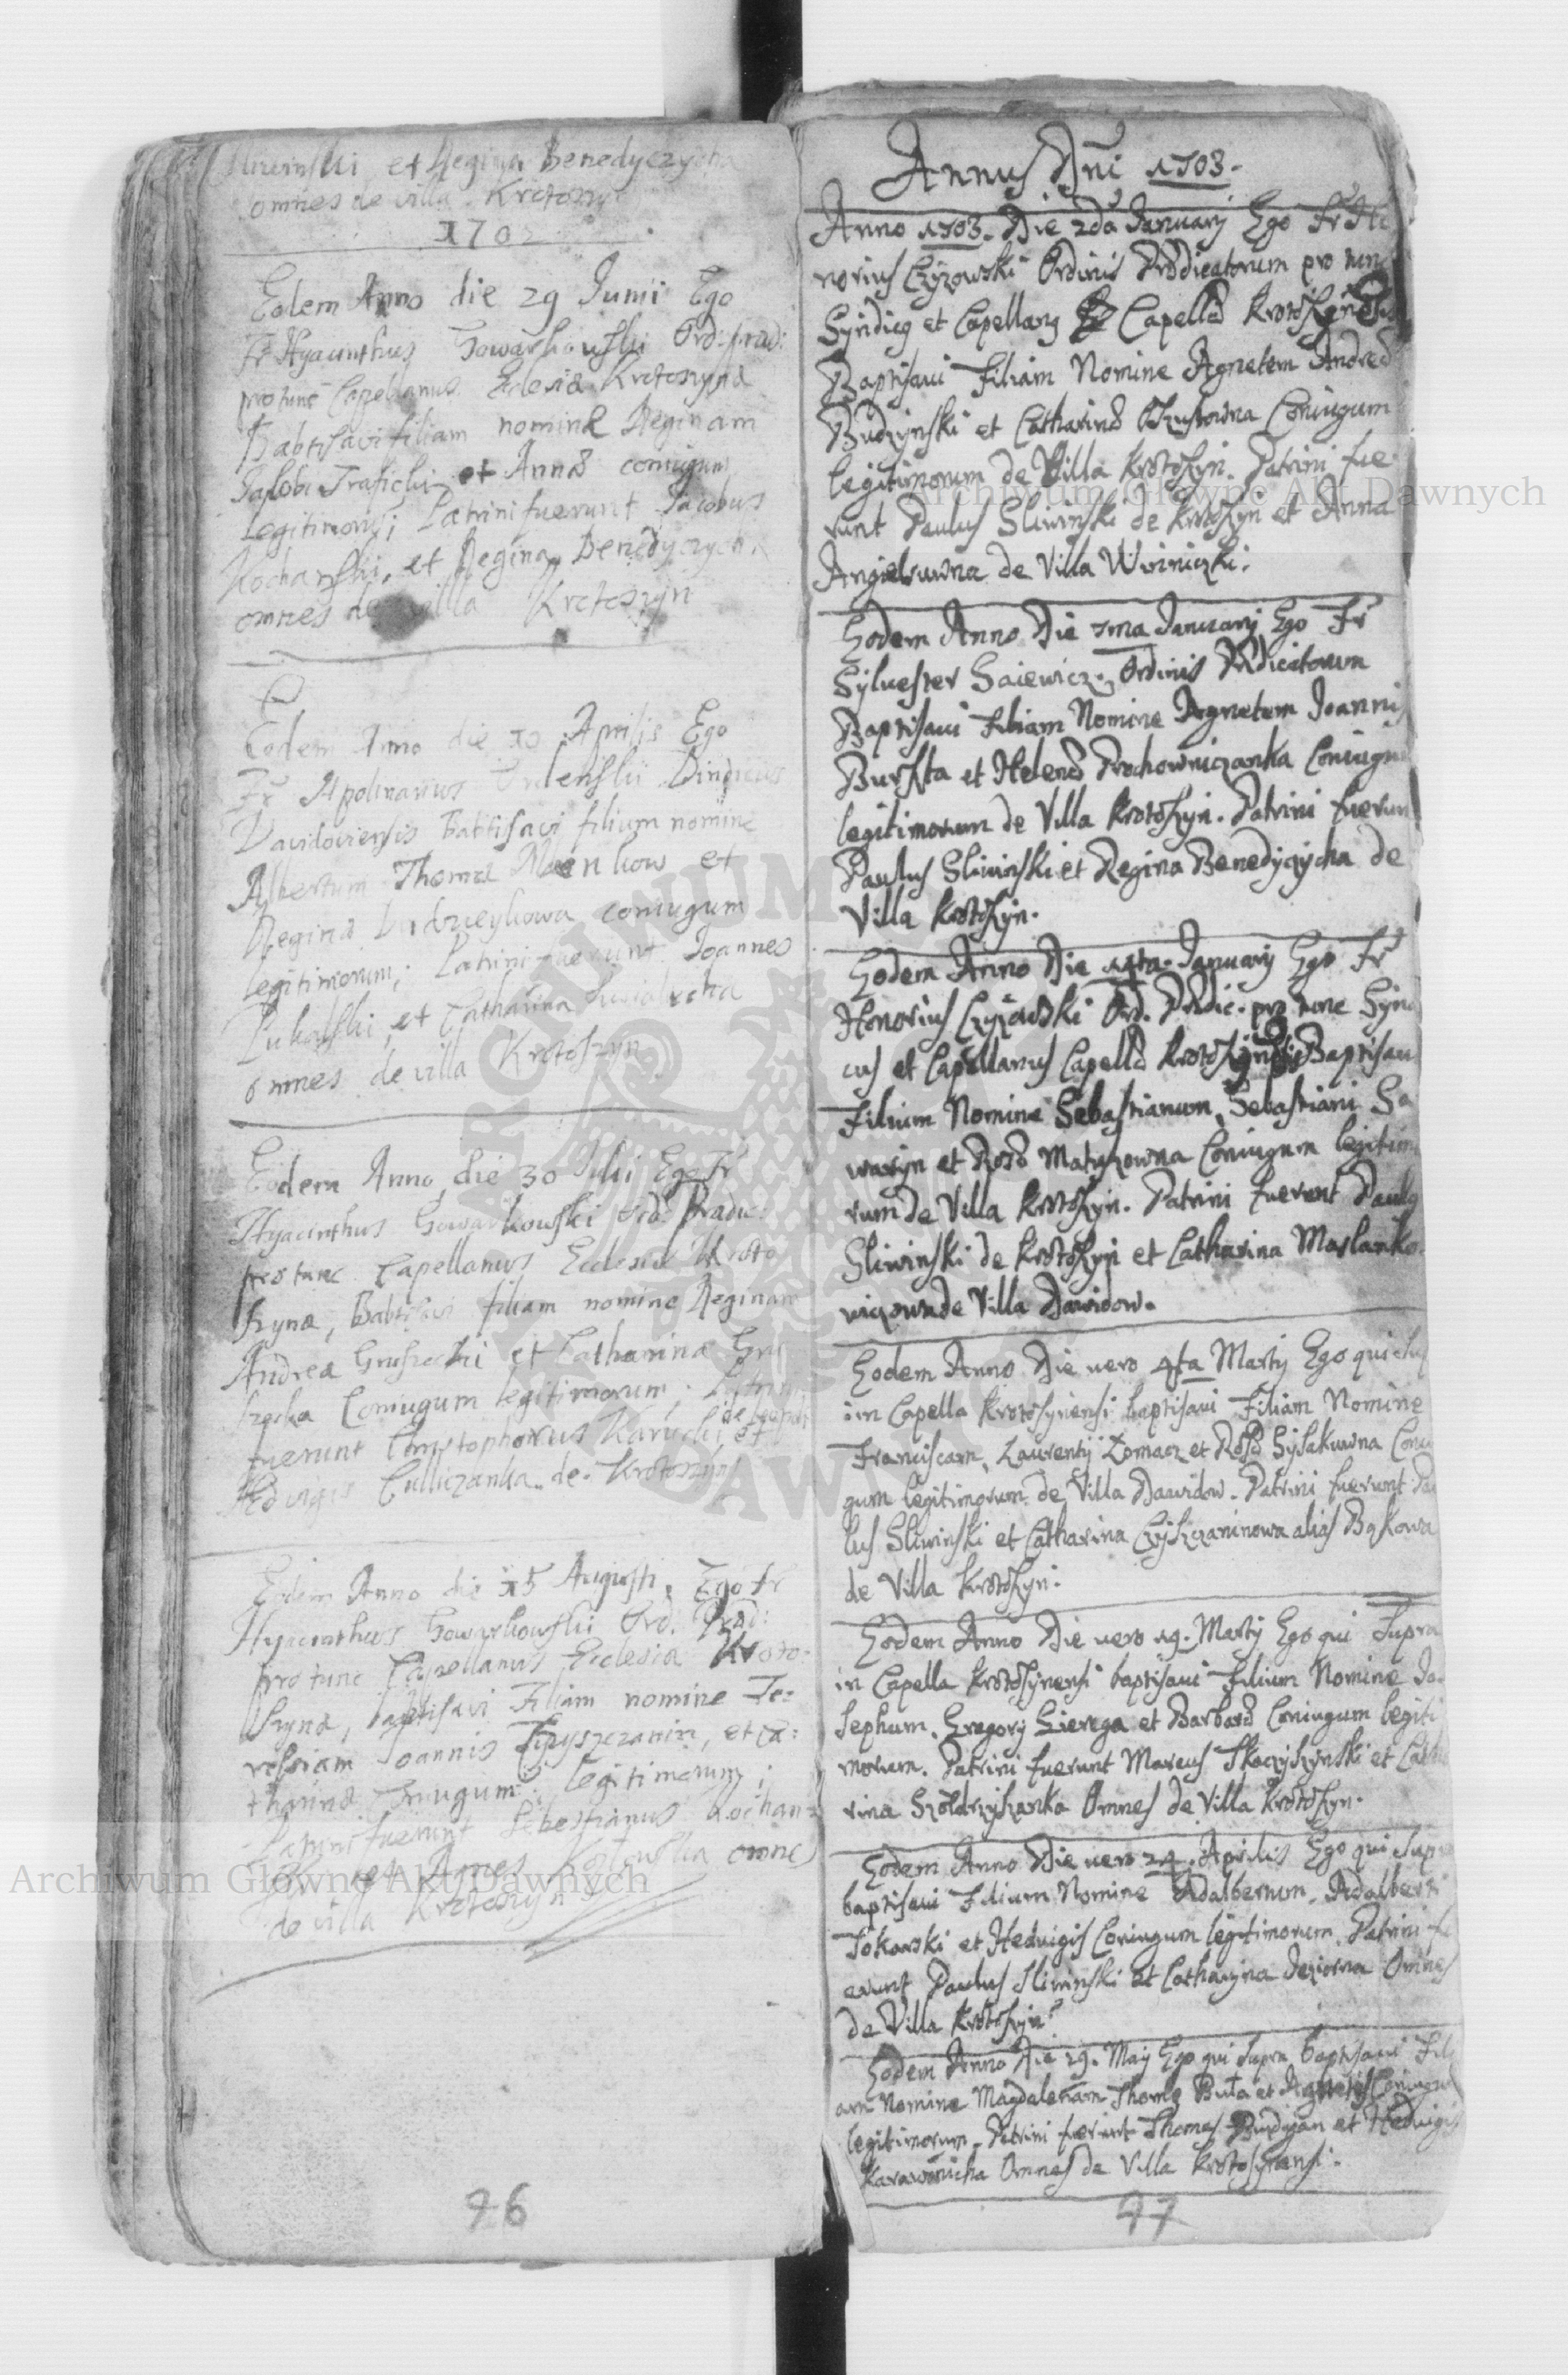 Sliwinski et Regina Benedyczycha
omnes de villa Krotoszyn
1702
Eodem Anno die 29 Junii Ego
Fr Hyacinthus Gowarkowski Ord: Præd:
pro tunc Capellanus Eclesiæ Krotoszynæ
Babtisavi filiam nomine Reginam
Jakobi et Annæ coniugum
Legitimoru; Patrini fuerunt Jacobus
Kochanski, et Regina Benedyczycha
omnes de villa Krotoszyn
Eodem Anno die 10 Aprilis Ego
Fr Apolinarius
Davidoviensis Babtisavi filium nomine
Albertum Thomæ et
Reginæ coniugum
legitimorum; Patrini fuerunt Joannes
et Catharina
omnes de villa Krotoszyn
Eodem Anno die 30 Julii Ego Fr
Hyacinthus Gowarkowski Ord: Prædic:
pro tunc Capellanus Ecclesiæ Kroto
szynæ, Babtisavi filiam nomine Reginam
Andreæ Gruszecki et Catharina Gru
szecka Coniugum legitimorum; Patrini
fuerunt Chrystophorus Karucki et
Hedvigis de Krotoszyn
Eodem Anno die 15 Augusti, Ego Fr
Hyacinthus Gowarkowski Ord. Præd:
pro tunc Capellanus Ecclesiæ Kroto:
szynæ, baptisavi Filiam nomine Te:
ressiam Joannis Czyszczanin, et Ca:
tharinæ Coniugum legitimorum;
Patrini fuerunt Sebestianus Kochan:
ski et Agnes Kozlowska omnes
de villa Krotoszyn
96
Annus Dni 1703.
Anno 1703. Die 2da January Ego Fr Ho
norius Czyzowski Ordinis Prædicatorum pro tunc
Syndicg et Capellang Capellæ Krotoszynensis
Baptisaui Filiam Nomine Agnetem Andreæ
Budzynski et Catharinæ Coniugum
legitimorum de Villa Krotoszyn. Patrini fue
runt Paulus Sliwinski de Krotoszyn et Anna
Angielowna de Villa Winniczki.
Eodem Anno Die 7ma January Ego Fr
Syluester Gaiewicz Ordinis Prædicatorum
Baptisaui Filiam Nomine Agnetem Joannis
Burszta et Helenæ Prochowniczanka Coniugu
legitimorum de Villa Krotoszyn. Patrini fuerun
Paulus Sliwinski et Regina Benedyczycha de
Villa Krotoszyn.
Eodem Anno Die 14ta January Ego Fr
Honorius Czyzowski Ord. Prædic. pro tunc Syndi
cus et Capellanus Capellæ Krotoszynensis Baptisaui
Filium Nomine Sebastianum, Sebastiani Sa
waryn et Rosæ Matyszowna Coniugum legitimo
rum de Villa Krotoszyn. Patrini fuerunt Paulg
Sliwinski de Krotoszyn et Catharina Maslanko
wiczowna de Villa Dawidow.
Eodem Anno Die uero 4ta Marty Ego qui sup
in Capella Krotoszynensi baptisaui Filiam Nomine
Franciscam, Laurenty Domacz et Rosæ Sysakuwna Coniu
gum legitimorum de Villa Dawidow. Patrini fuerunt Pau
lus Sliwinski et Catharina Czyszczaninowa alias Bąkowa
de Villa Krotoszyn.
Eodem Anno Die uero 19. Marty Ego qui Supra
in Capella Krotoszynensi baptisaui Filium Nomine Jo
sephum, Gregory Gierega et Barbaræ Coniugum legiti
morum. Patrini fuerunt Marcus Skoczyszynski et Catha
rina Szoldrzyszanka Omnes de Villa Krotoszyn.
Eodem Anno Die uero 24. Aprilis Ego qui Supra
baptisaui Filium Nomine Adalbertum, Adalberti
Tokarski et Hedvigis Coniugum legitimorum. Patrini fu
erunt Paulus Sliwinski et Catharina Omnes
de Villa Krotoszyn.
Eodem Anno Die 29. May Ego qui Supra baptisaui Fili
am Nomine Magdalenam Thomę Buta et Agnetis Coniugum
legitimorum. Patrini fuerunt Thomas et Hedvigis
Karawonicha Omnes de Villa Krotoszynensi.
97
Archiwum Główne Akt Dawnych
Archiwum Główne Akt Dawnych
ARCHIWUM
DAWNYCH